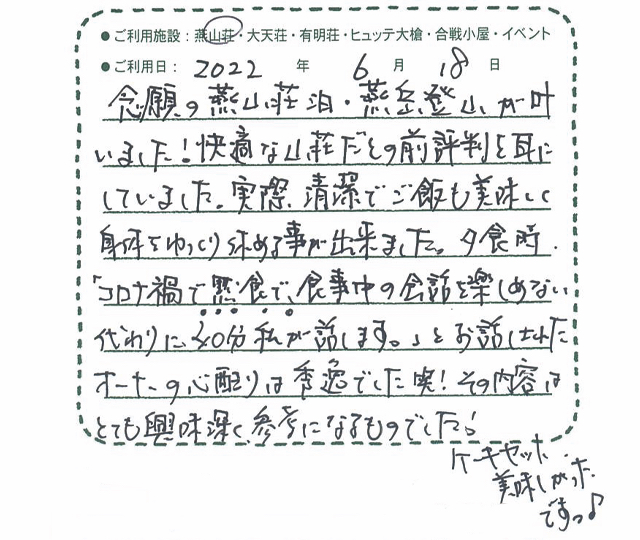 ●ご利用施設：燕山荘・大天荘・有明荘・ヒュッテ大槍・合戦小屋・イベント
●ご利用日： 2022 年 6 月 18 日
念願の燕山荘泊・燕岳登山が叶
いました！快適な山荘だとの前評判を耳に
していました。実際、清潔でご飯も美味しく
身体をゆっくり休める事が出来ました。夕食時、
「コロナ禍で黙食で、食事中の会話を楽しめない
代わりに30分私が話します。」とお話しされた
オーナーの心配りは秀逸でした笑！その内容は
とても興味深く、参考になるものでした！
ケーキセット、
美味しかった
ですっ♪